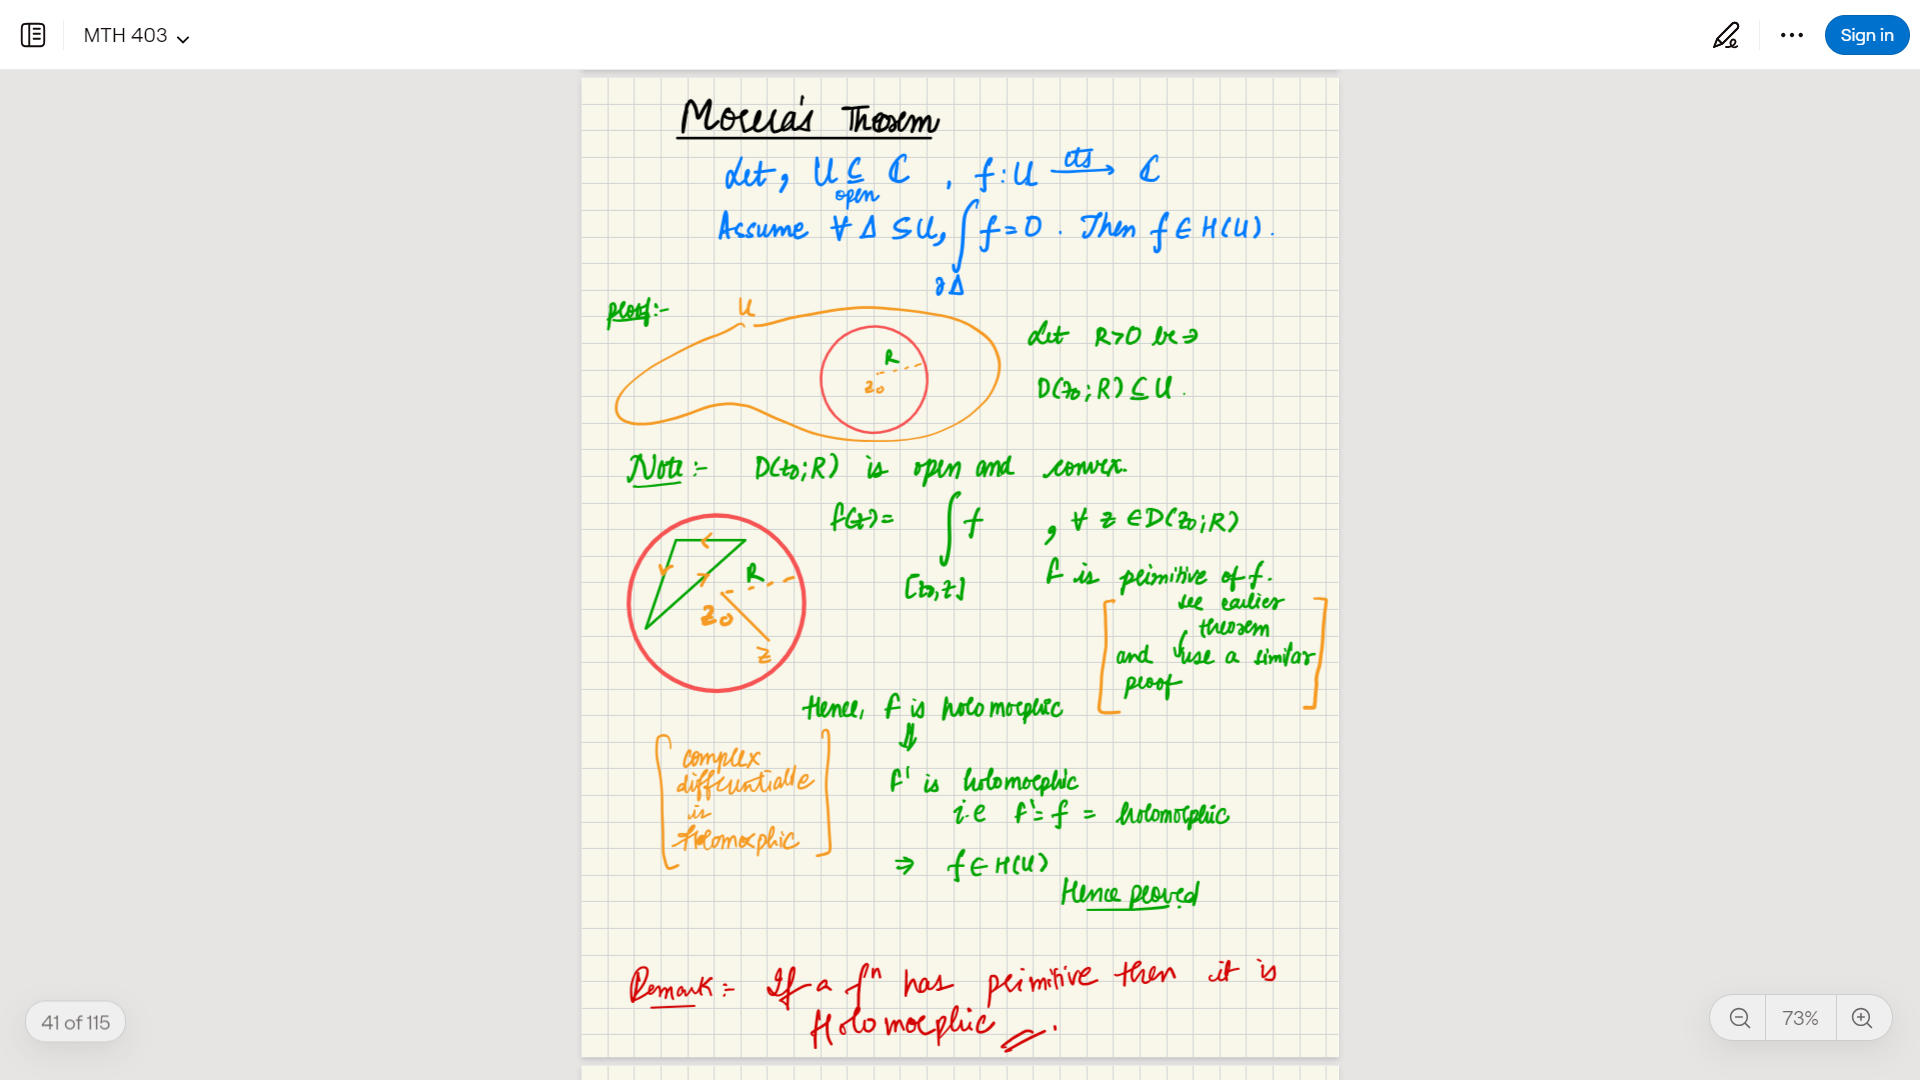 MTH 403
Sign in
Morera's Theorem
Let, U ⊆ ℂ , f : U → ℂ
open
cts
Assume ∀ Δ ⊆ U, ∫ f = 0 . Then f ∈ H(U).
∂Δ
proof:-
U
R
z₀
Let R>0 be ∋
D(z₀;R) ⊆ U.
Note:- D(z₀;R) is open and convex.
F(z) = ∫ f , ∀ z ∈ D(z₀;R)
[z₀,z]
R
z₀
z
F is primitive of f.
[see earlier
theorem
and use a similar
proof]
Hence, F is holomorphic
⇓
[complex
differentiable
is
Holomorphic]
F' is holomorphic
i.e F' = f = holomorphic
⇒ f ∈ H(U)
Hence proved
Remark:- If a fⁿ has primitive then it is
Holomorphic.
41 of 115
73%